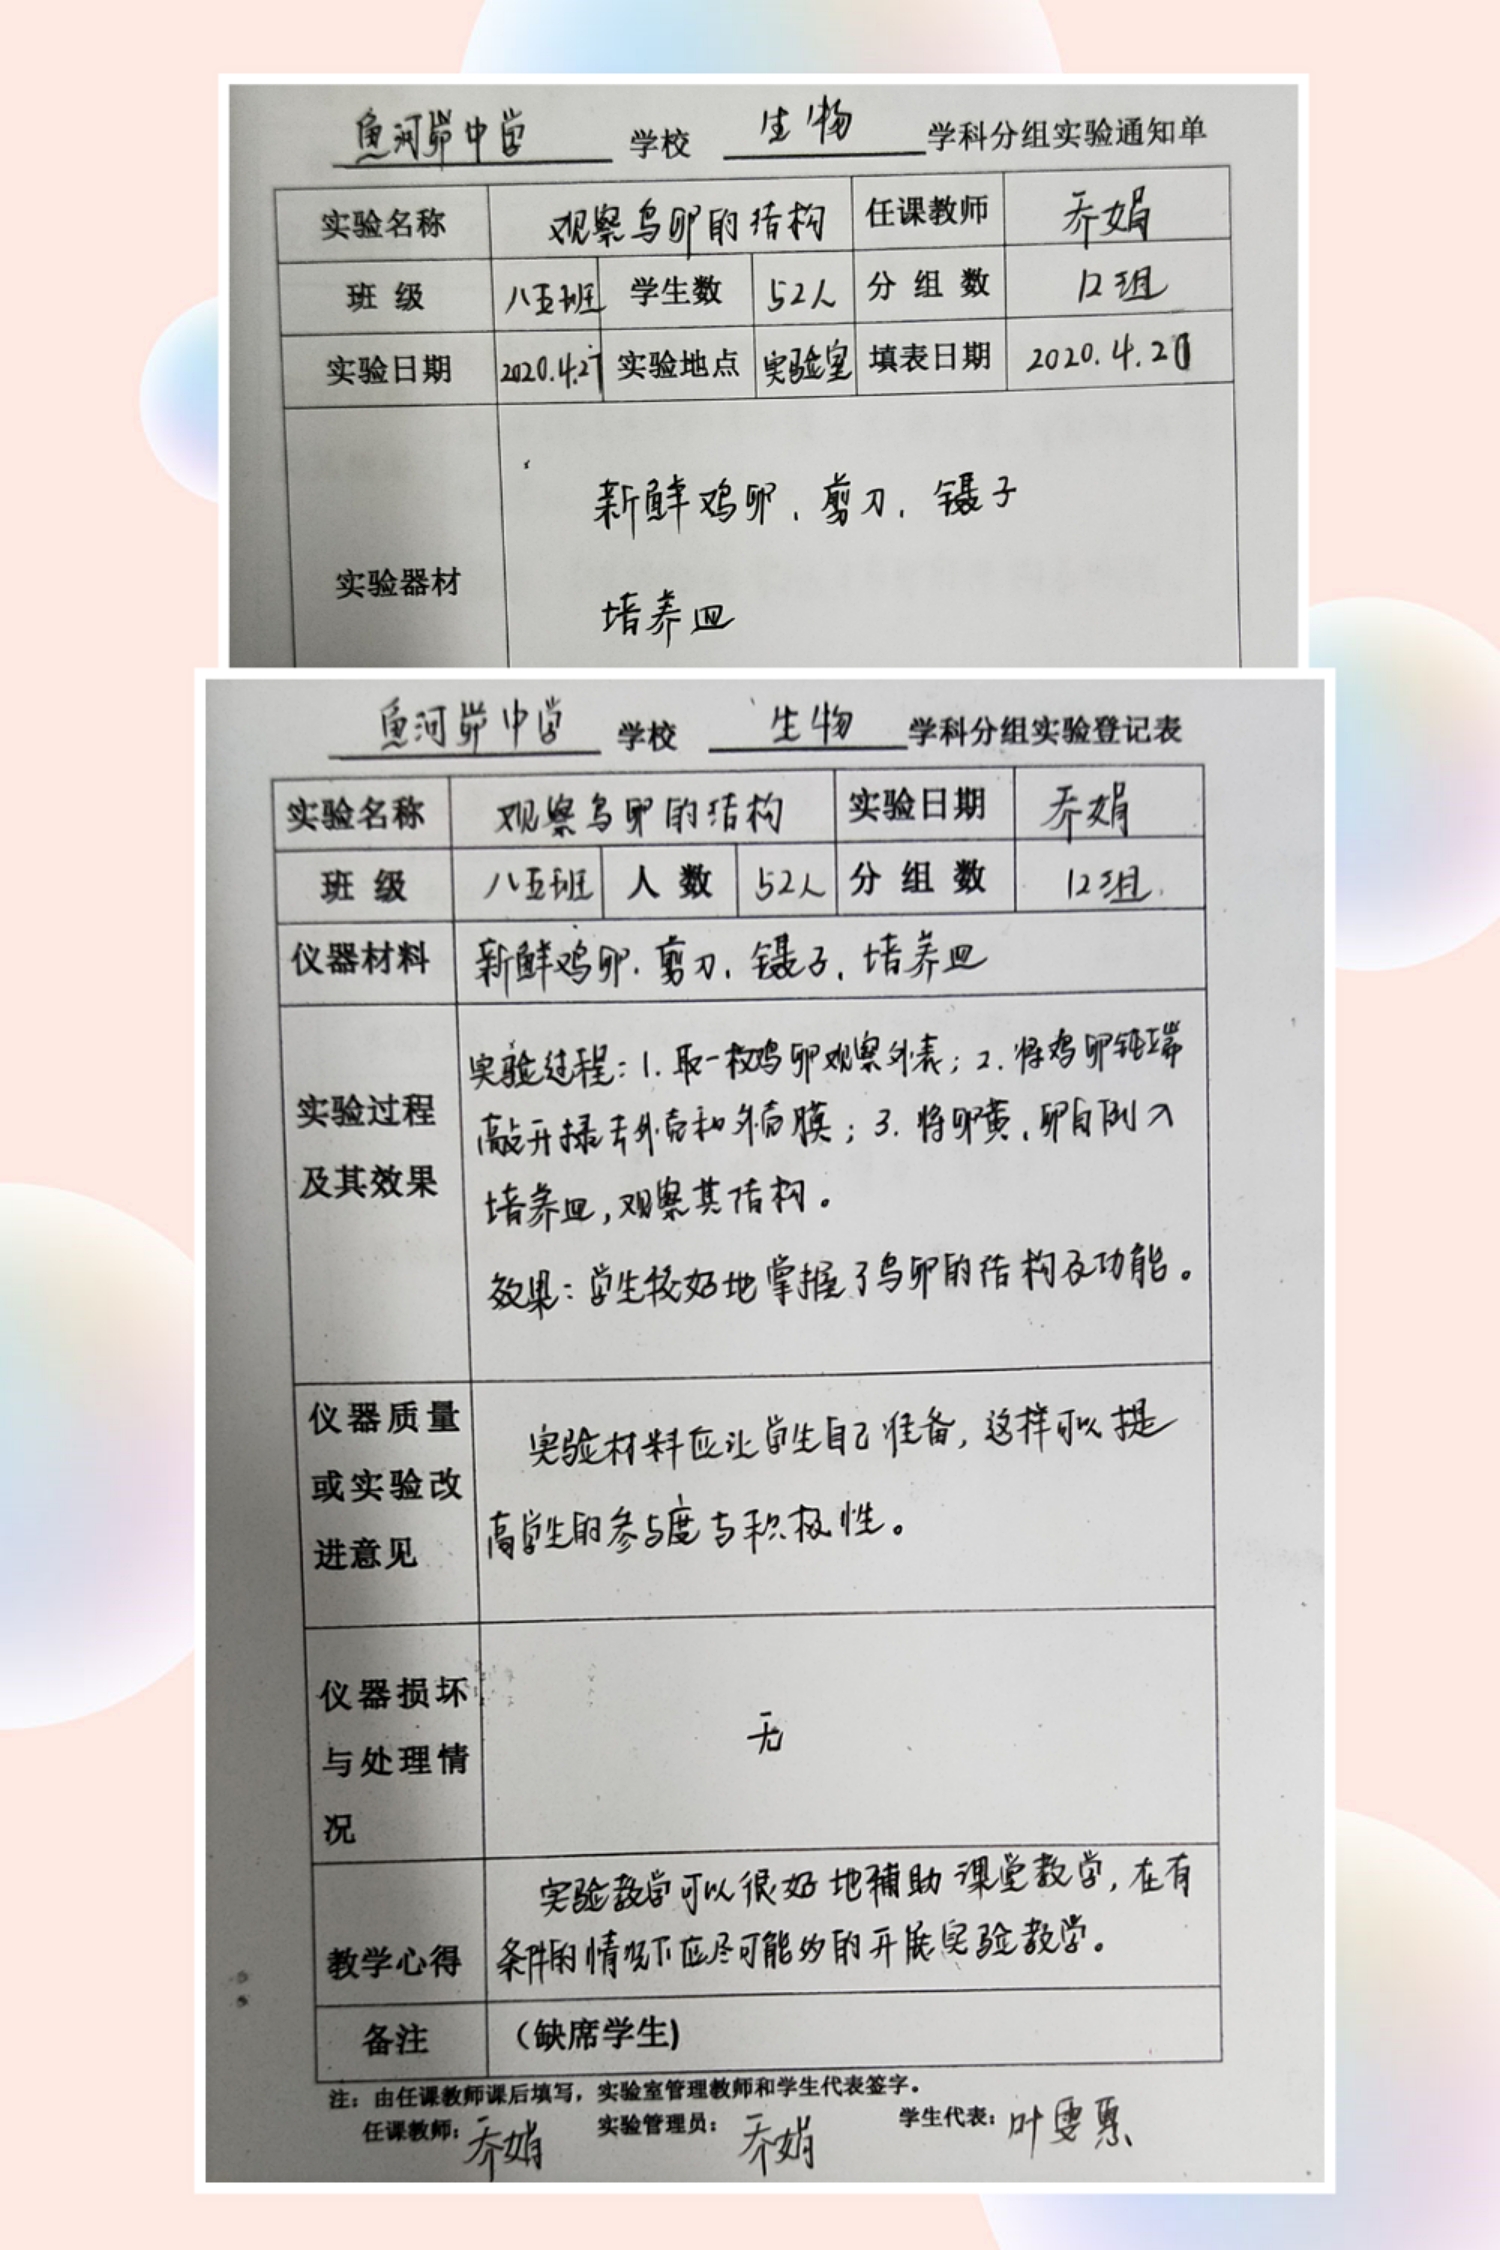 鱼河峁中学 学校 生物 学科分组实验通知单
实验名称 观察鸟卵的结构 任课教师 乔娟
班级 八五班 学生数 52人 分组数 12组
实验日期 2020.4.27 实验地点 实验室 填表日期 2020.4.20
新鲜鸡卵、剪刀、镊子
实验器材
培养皿
鱼河峁中学 学校 生物 学科分组实验登记表
实验名称 观察鸟卵的结构 实验日期 乔娟
班级 八五班 人数 52人 分组数 12组
仪器材料 新鲜鸡卵、剪刀、镊子、培养皿
实验过程及其效果
实验过程：1. 取一枚鸡卵观察外表；2. 将鸡卵钝端
敲开揉去外壳和外壳膜；3. 将卵黄、卵白倒入
培养皿，观察其结构。
效果：学生较好地掌握了鸟卵的结构及功能。
仪器质量
或实验改
进意见
实验材料应让学生自己准备，这样可以提
高学生的参与度与积极性。
仪器损坏
与处理情
况
无
教学心得
实验教学可以很好地辅助课堂教学，在有
条件的情况下应尽可能的的开展实验教学。
备注 （缺席学生)
注：由任课教师课后填写，实验室管理教师和学生代表签字。
任课教师：乔娟 实验管理员：乔娟 学生代表：叶